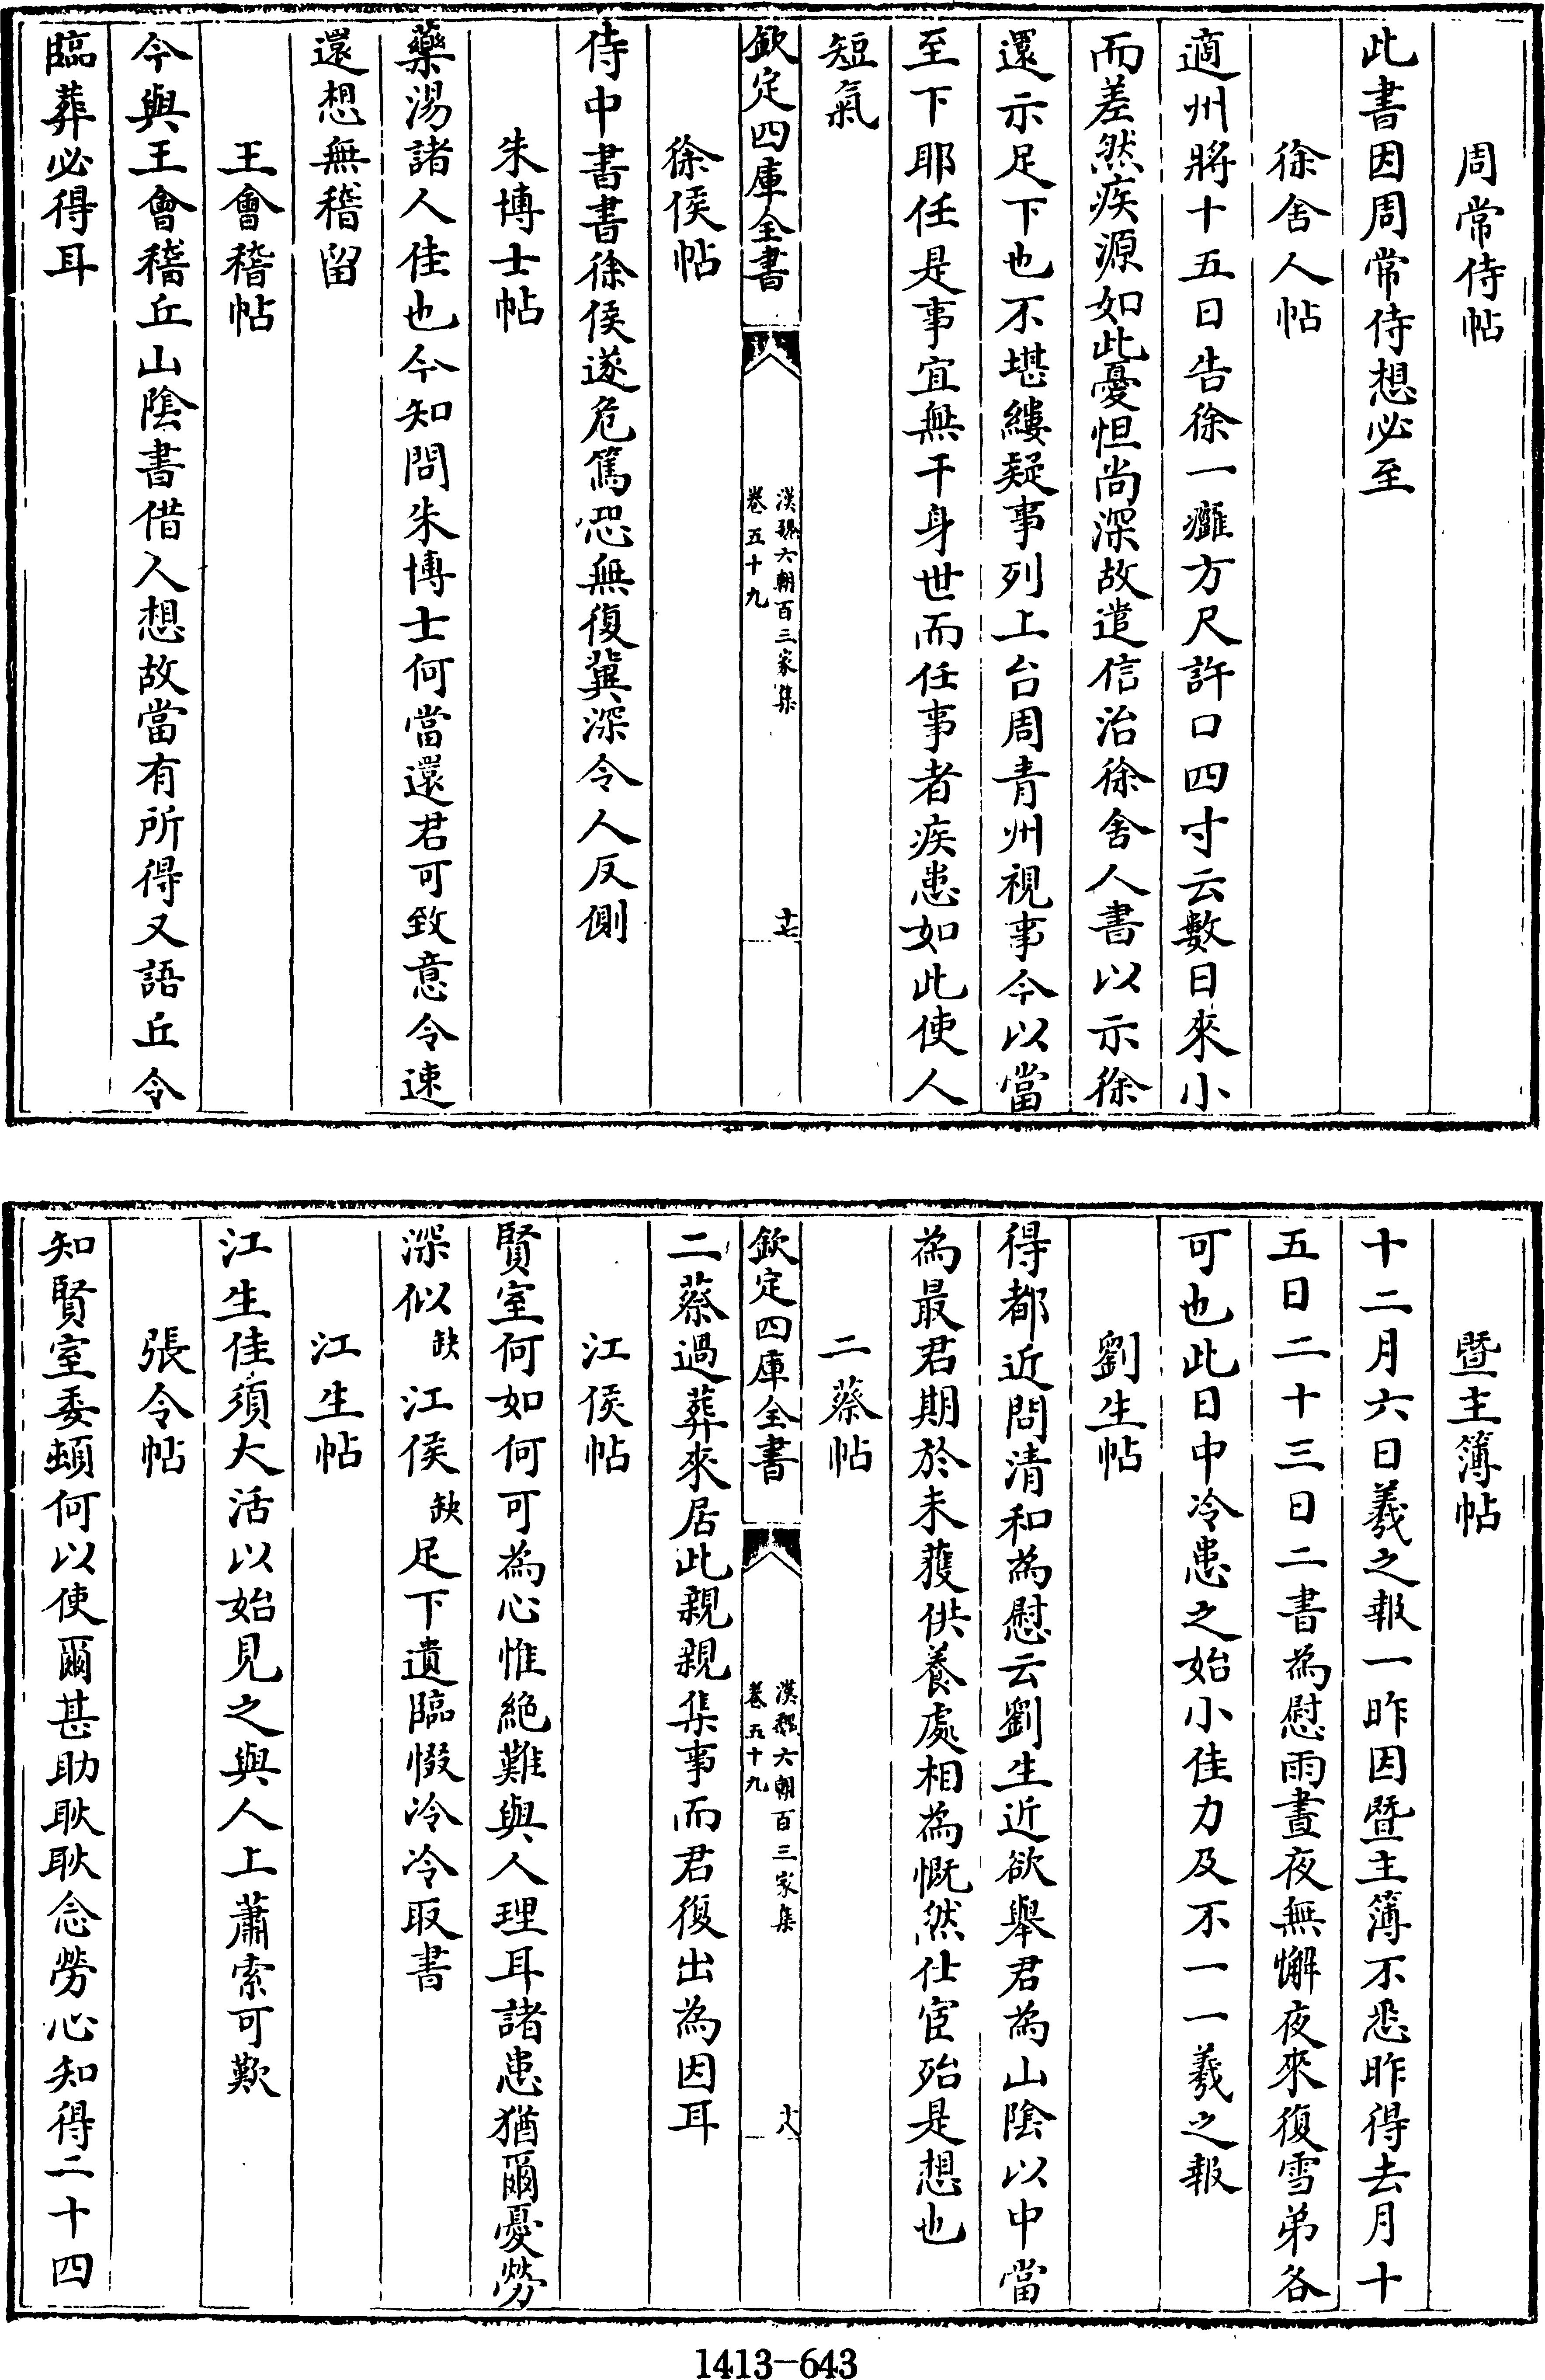 周常侍帖
此書因周常侍想必至
徐舍人帖
適州將十五日告徐一癰方尺許口四寸云數日來小
而差然疾源如此憂怛尚深故遣信治徐舍人書以示徐
還示足下也不堪縷疑事列上台周青州視事今以當
至下耶任是事宜無干身世而任事者疾患如此使人
短氣
欽定四庫全書
漢魏六朝百三家集
卷五十九
十七
徐侯帖
侍中書書徐侯遂危篤恐無復冀深令人反側
朱博士帖
藥湯諸人佳也今知問朱博士何當還君可致意令速
還想無稽留
王會稽帖
今與王會稽丘山陰書借人想故當有所得又語丘令
臨葬必得耳
暨主簿帖
十二月六日羲之報一昨因暨主簿不悉昨得去月十
五日二十三日二書為慰雨晝夜無懈夜來復雪弟各
可也此日中冷患之始小佳力及不一一羲之報
劉生帖
得都近問清和為慰云劉生近欲舉君為山陰以中當
為最君期於未獲供養處相為慨然仕宦殆是想也
二蔡帖
欽定四庫全書
漢魏六朝百三家集
卷五十九
十八
二蔡過葬來居此親親集事而君復出為因耳
江侯帖
賢室何如何可為心惟絶難與人理耳諸患猶爾憂勞
深似缺江侯缺足下遺臨惙冷冷取書
江生帖
江生佳須大活以始見之與人上蕭索可歎
張令帖
知賢室委頓何以使爾甚助耿耿念勞心知得二十四
1413-643